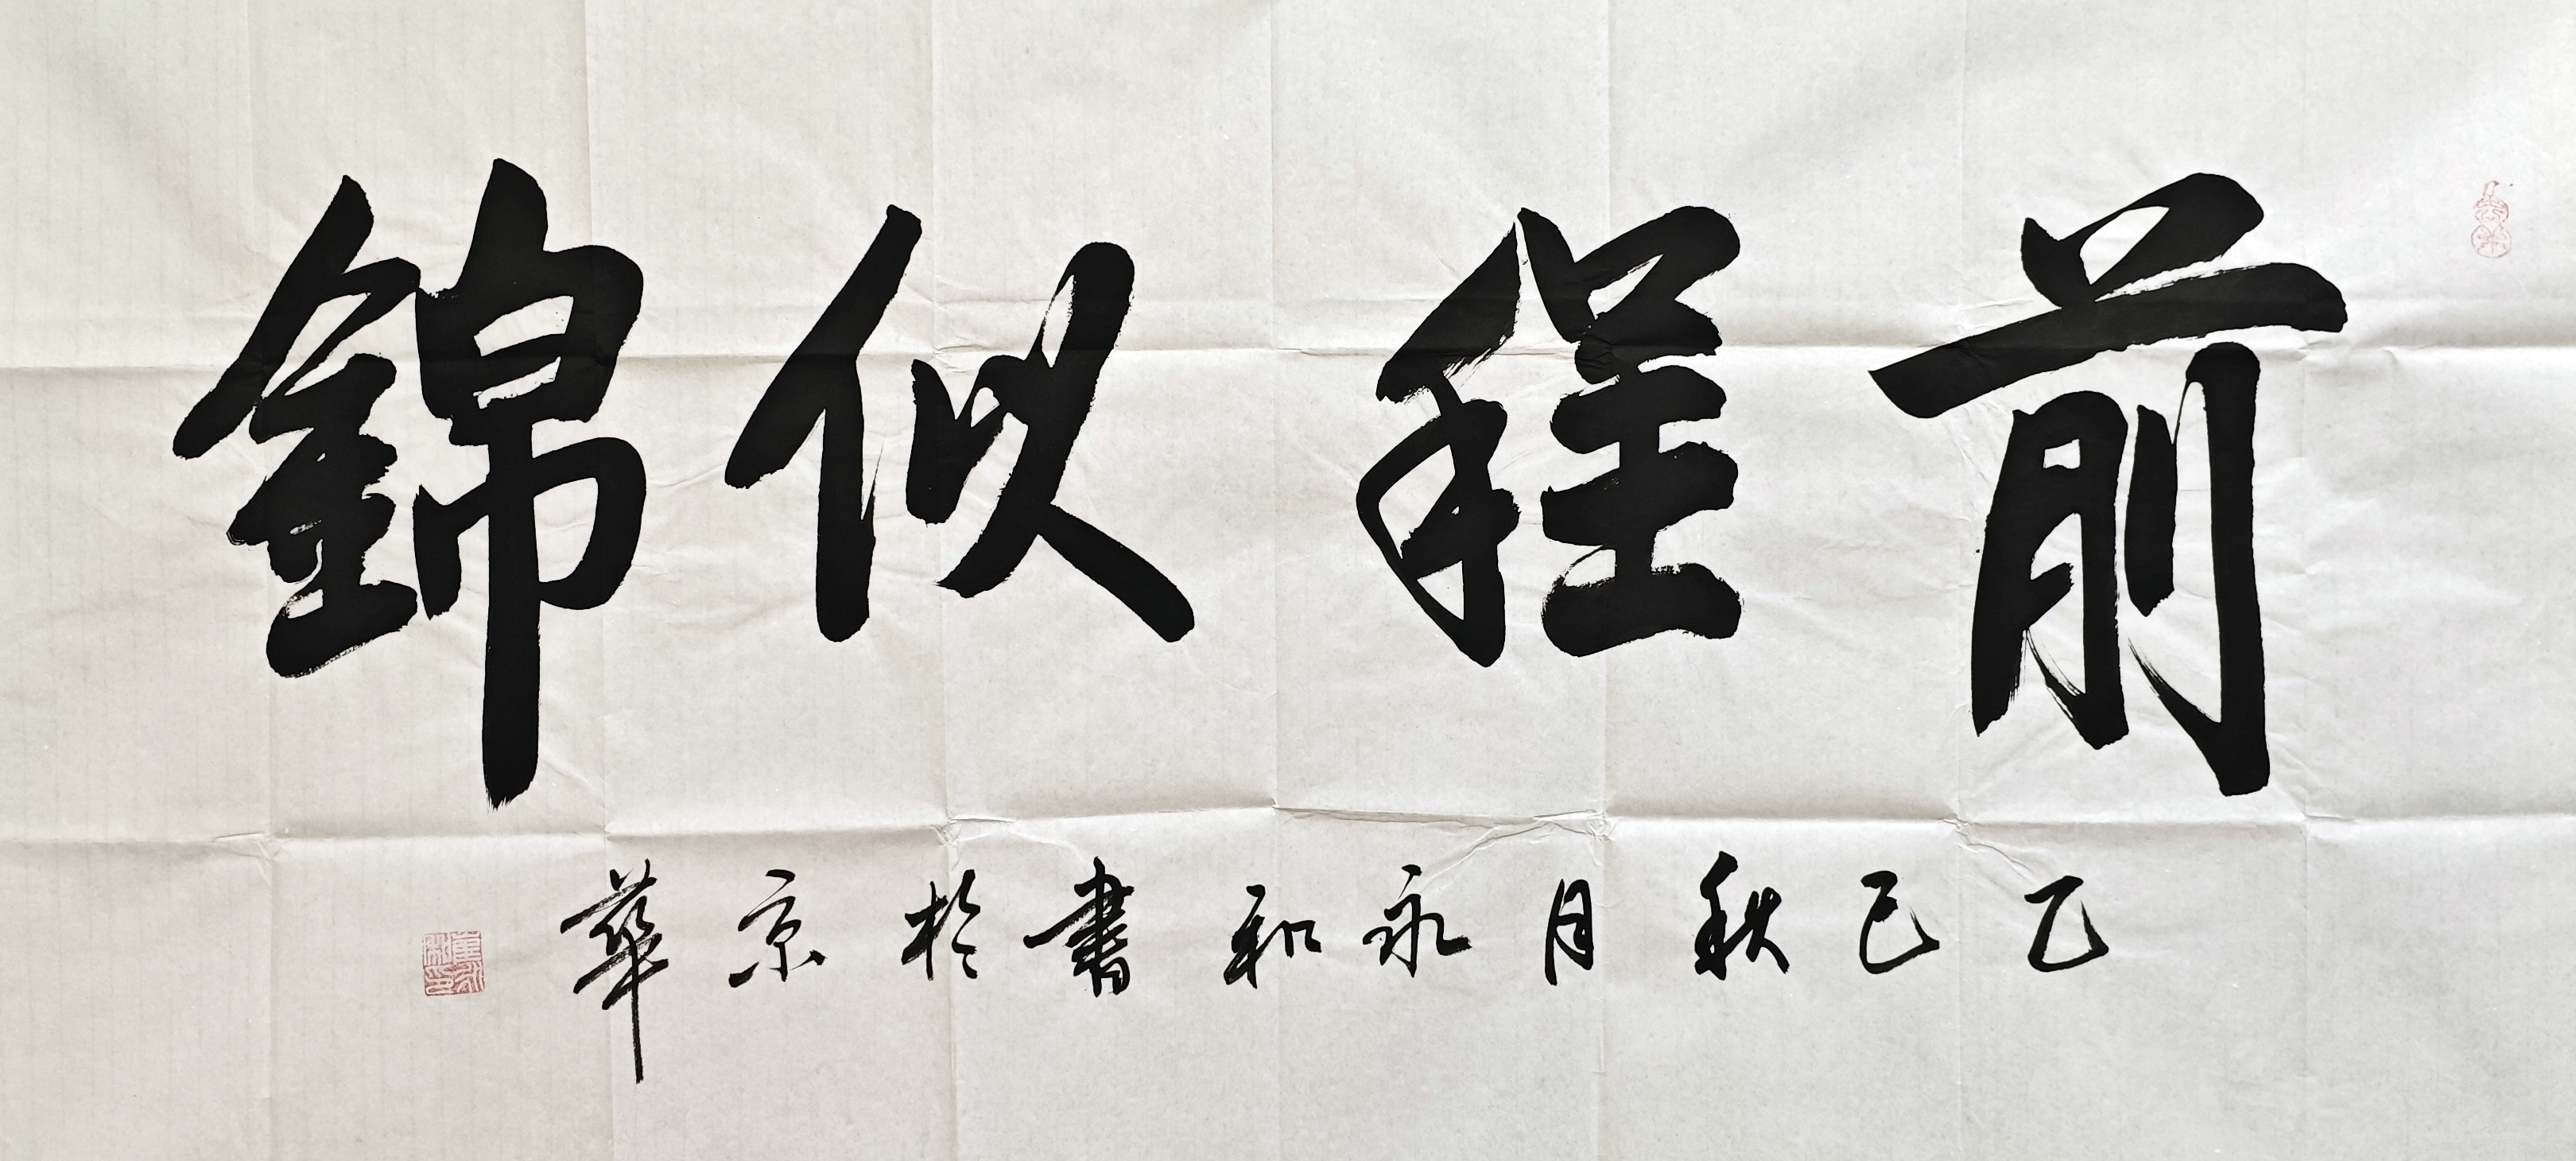 前程似錦
乙巳秋月永和書於京華